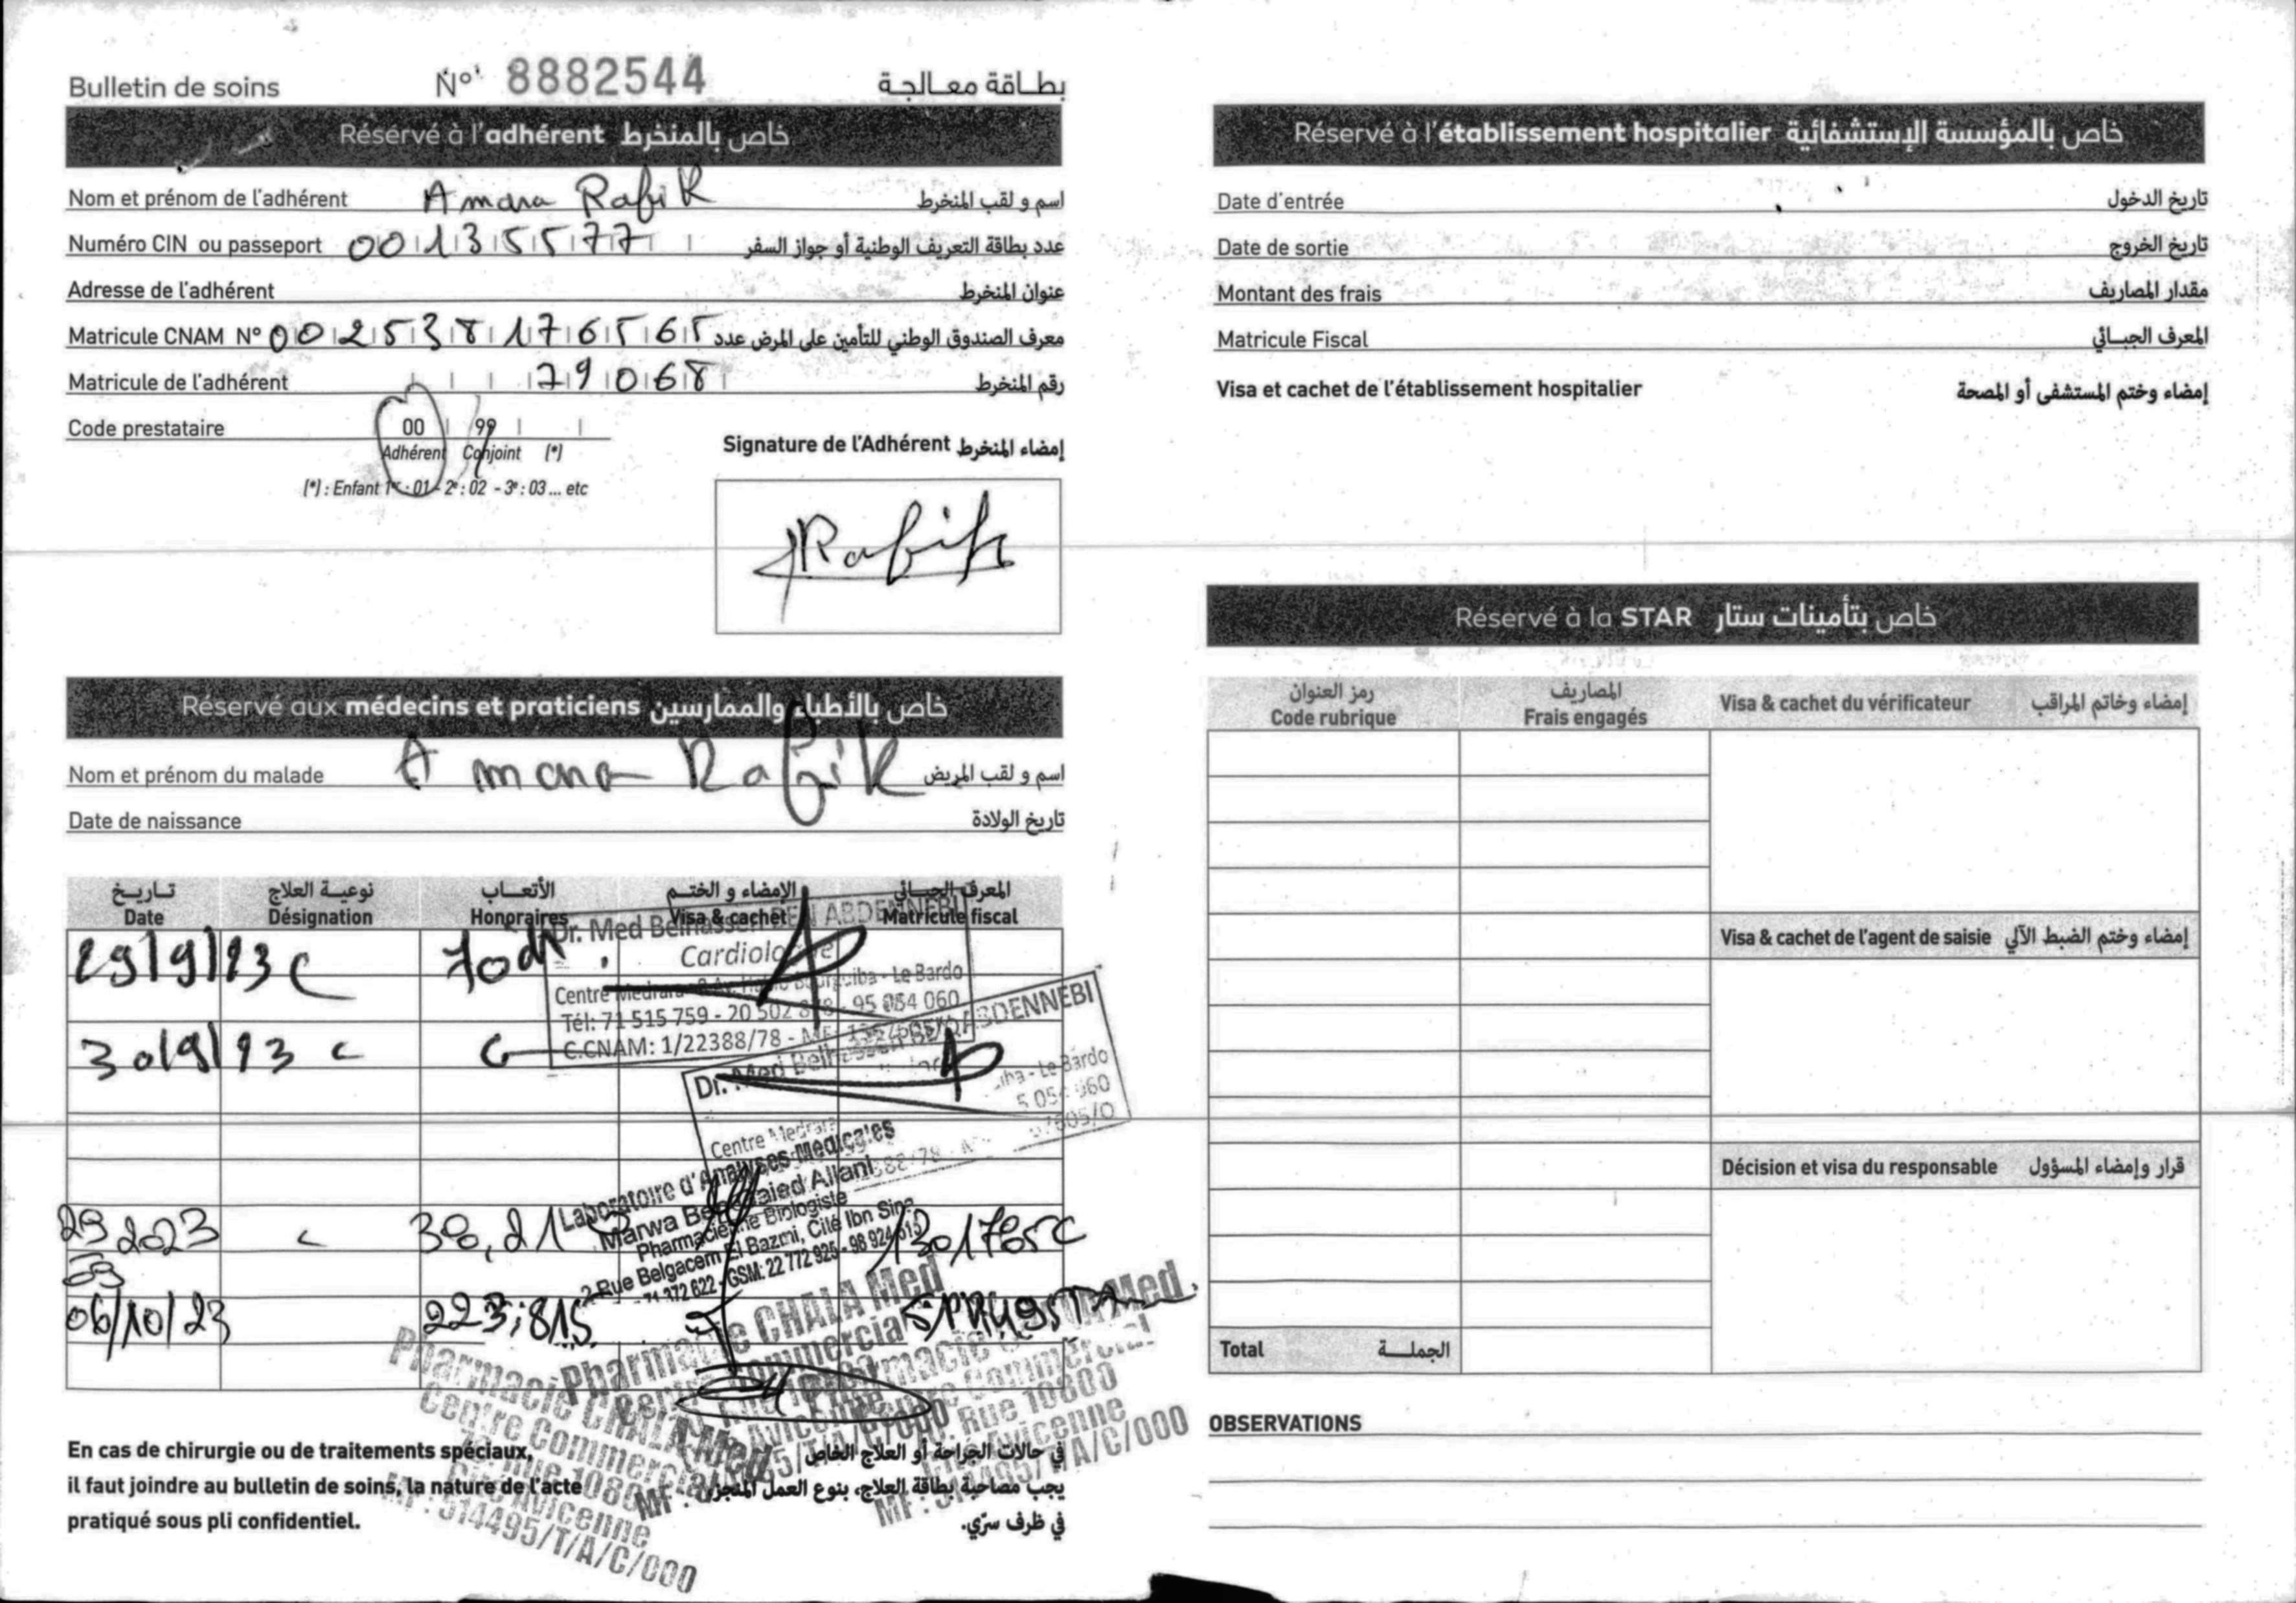 Bulletin de soins N° 8882544 بطاقة معالجة
Résérvé à l'adhérent خاص بالمنخرط
Nom et prénom de l'adhérent Amara Rafik اسم و لقب المنخرط
Numéro CIN ou passeport 00135577 عدد بطاقة التعريف الوطنية أو جواز السفر
Adresse de l'adhérent عنوان المنخرط
Matricule CNAM N° 002538176565 معرف الصندوق الوطني للتأمين على المرض عدد
Matricule de l'adhérent 79068 رقم المنخرط
Code prestataire 00 99
Adhérent Conjoint (*)
(*) : Enfant 1er : 01 - 2e : 02 - 3e : 03 ... etc
Signature de l'Adhérent إمضاء المنخرط
Rafik
Réservé aux médecins et praticiens خاص بالأطباء والممارسين
Nom et prénom du malade Amara Rafik اسم و لقب المريض
Date de naissance تاريخ الولادة
تاريخ نوعية العلاج الأتعاب الإمضاء و الختم المعرف الجبائي
Date Désignation Honoraires Visa & cachet Matricule fiscal
29/9/23 C 70dt
Dr. Med Belhassen BEN ABDENNEBI
Cardiologue
Centre Medrara Bourguiba - Le Bardo
Tél: 71 515 759 - 20 502 878 - 95 054 060
C.CNAM: 1/22388/78
30/9/23 C G
Dr. Med Belhassen BEN ABDENNEBI
Centre Medrara - Le Bardo
Laboratoire d'Analyses Médicales
Marwa Allani
Pharmacienne Biologiste
2 Rue Belgacem El Bazmi, Cité Ibn Sina
71 372 622 - GSM: 22 772 925 - 98 924 613
29 2023 38,21 1301785C
09
06/10/23 223,815
Pharmacie CHALA Med
Centre Commercial
Rue 10800
Avicenne
MF : 514495/T/A/C/000
Pharmacie CHALA Med
Centre Commercial
Rue 10800
Avicenne
MF : 514495/T/A/C/000
En cas de chirurgie ou de traitements spéciaux,
il faut joindre au bulletin de soins, la nature de l'acte
pratiqué sous pli confidentiel.
في حالات الجراحة أو العلاج الخاص
يجب مصاحبة بطاقة العلاج، بنوع العمل المنجز
في ظرف سرّي.
Réservé à l'établissement hospitalier خاص بالمؤسسة الإستشفائية
Date d'entrée تاريخ الدخول
Date de sortie تاريخ الخروج
Montant des frais مقدار المصاريف
Matricule Fiscal المعرف الجبائي
Visa et cachet de l'établissement hospitalier إمضاء وختم المستشفى أو المصحة
Réservé à la STAR خاص بتأمينات ستار
رمز العنوان المصاريف
Code rubrique Frais engagés Visa & cachet du vérificateur إمضاء وخاتم المراقب
Visa & cachet de l'agent de saisie إمضاء وختم الضبط الآلي
Décision et visa du responsable قرار وإمضاء المسؤول
Total الجملة
OBSERVATIONS